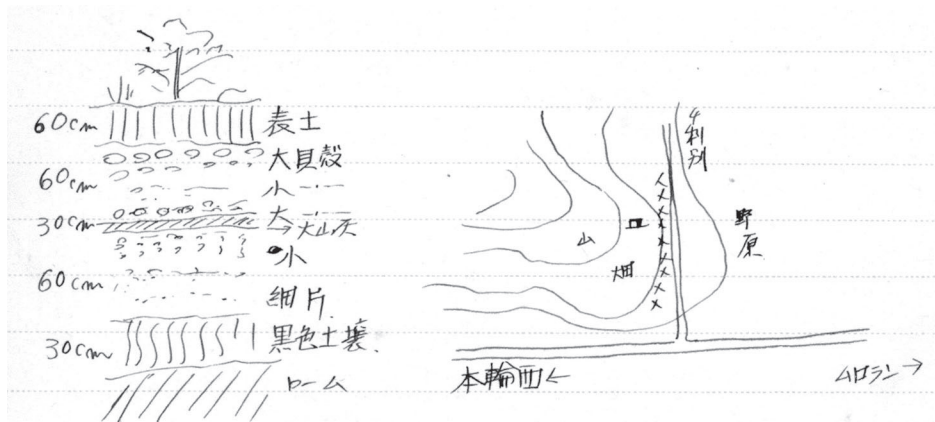 60cm
表土
大貝殻
60cm
小
大
30cm
→火山灰
小
60cm
細片
30cm
黒色土壌
ローム
チリベツ
野原
山
畑
本輪西←
ムロラン→